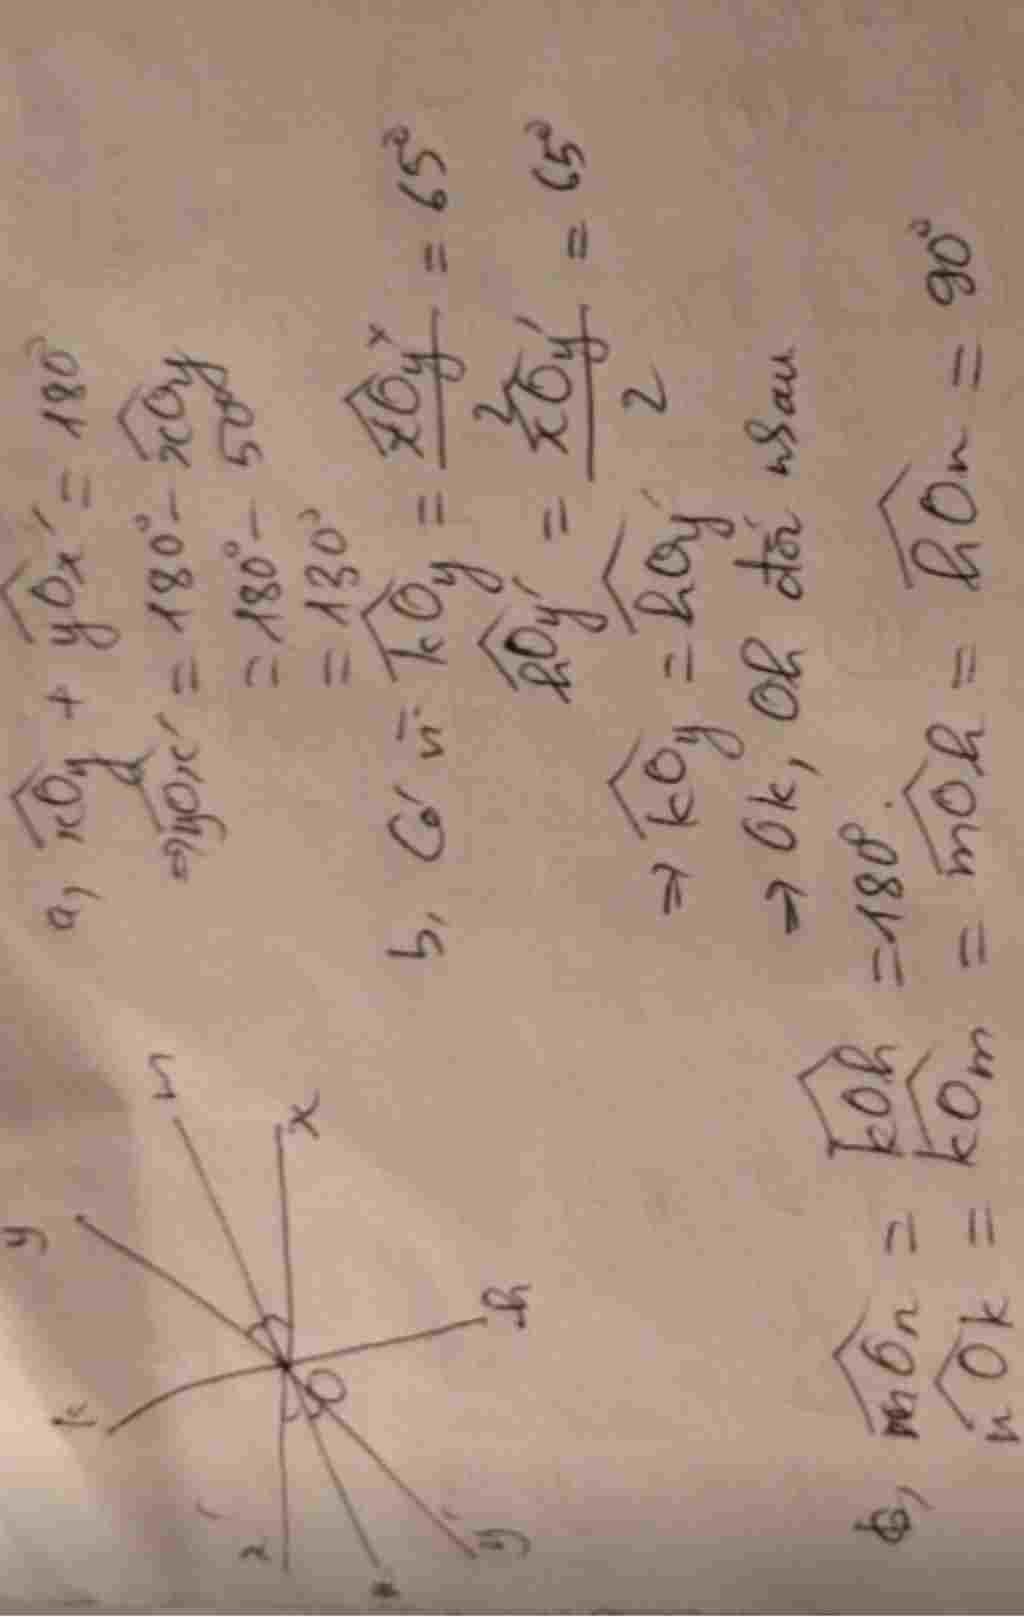 a, xOy + yOx' = 180°
⇒ yOx' = 180° - xOy
= 180° - 50°
= 130°
b, Có vì kOy = xOy' / 2 = 65°
hOy' = xOy' / 2 = 65°
⇒ kOy = hOy'
⇒ Ok, Oh đối nhau
c, mOn = kOh = 180°.
nOk = kOm = mOh = hOn = 90°
y
k
m
x'
O
x
n
y'
h